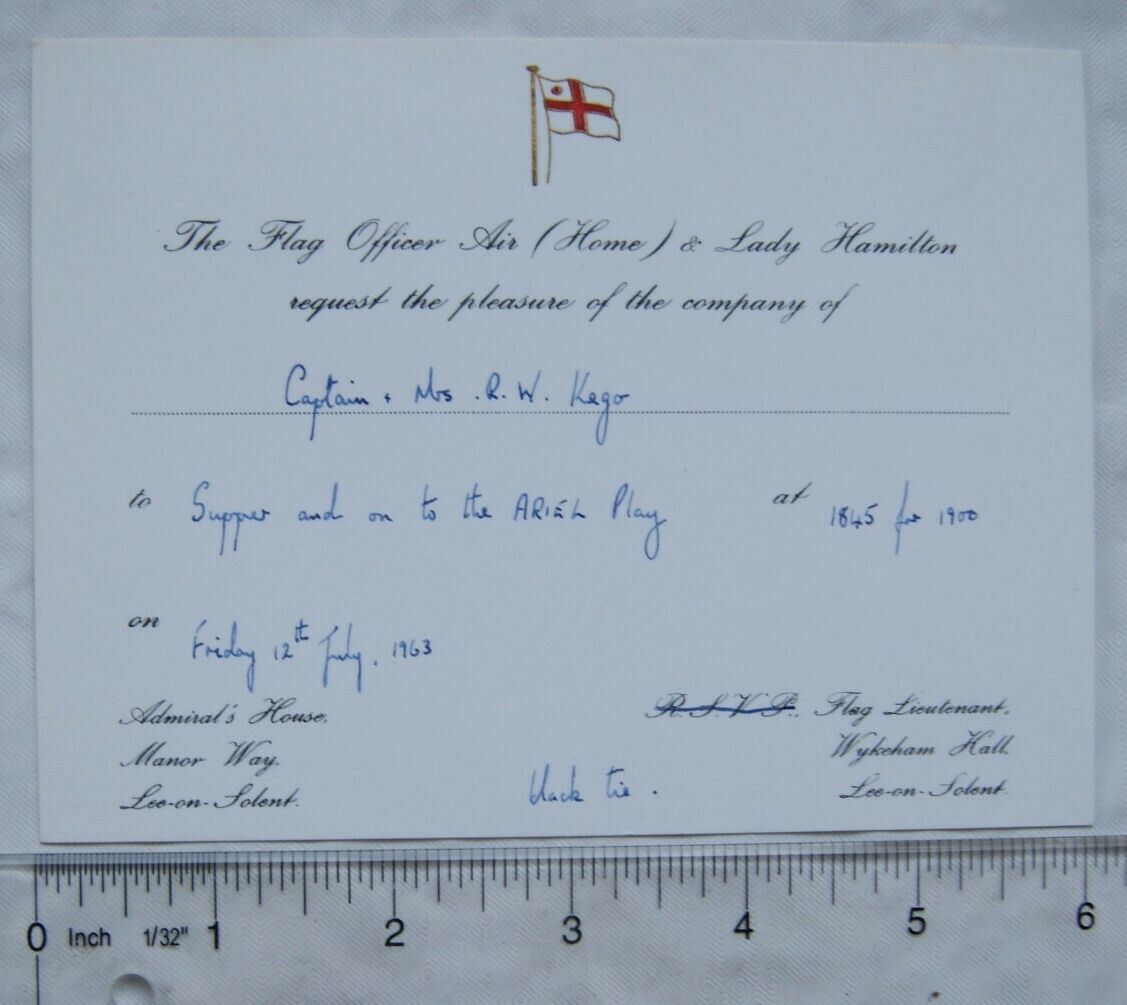 The Flag Officer Air (Home) & Lady Hamilton
request the pleasure of the company of
Captain + Mrs . R. W. Kego
to Supper and on to the ARIEL Play at 1845 for 1900
on Friday 12th July, 1963
Admiral's House, R.S.V.P., Flag Lieutenant,
Manor Way, Wykeham Hall,
Lee-on-Solent. black tie . Lee-on-Solent.
0 Inch 1/32" 1 2 3 4 5 6